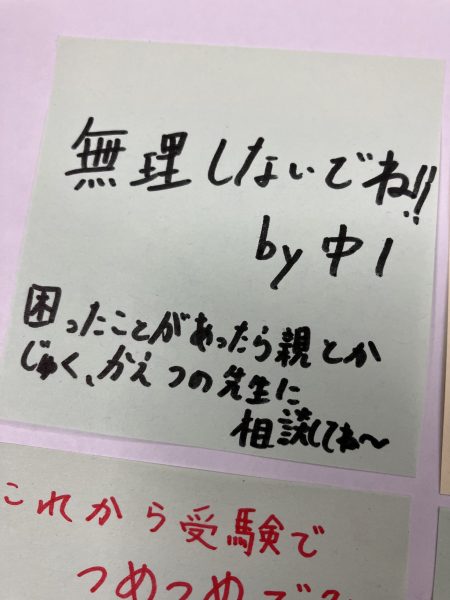 無理しないでね!!
by 中1
困ったことがあったら親とか
じゅく、かえつの先生に
相談してね〜
これから受験で
つめつめで